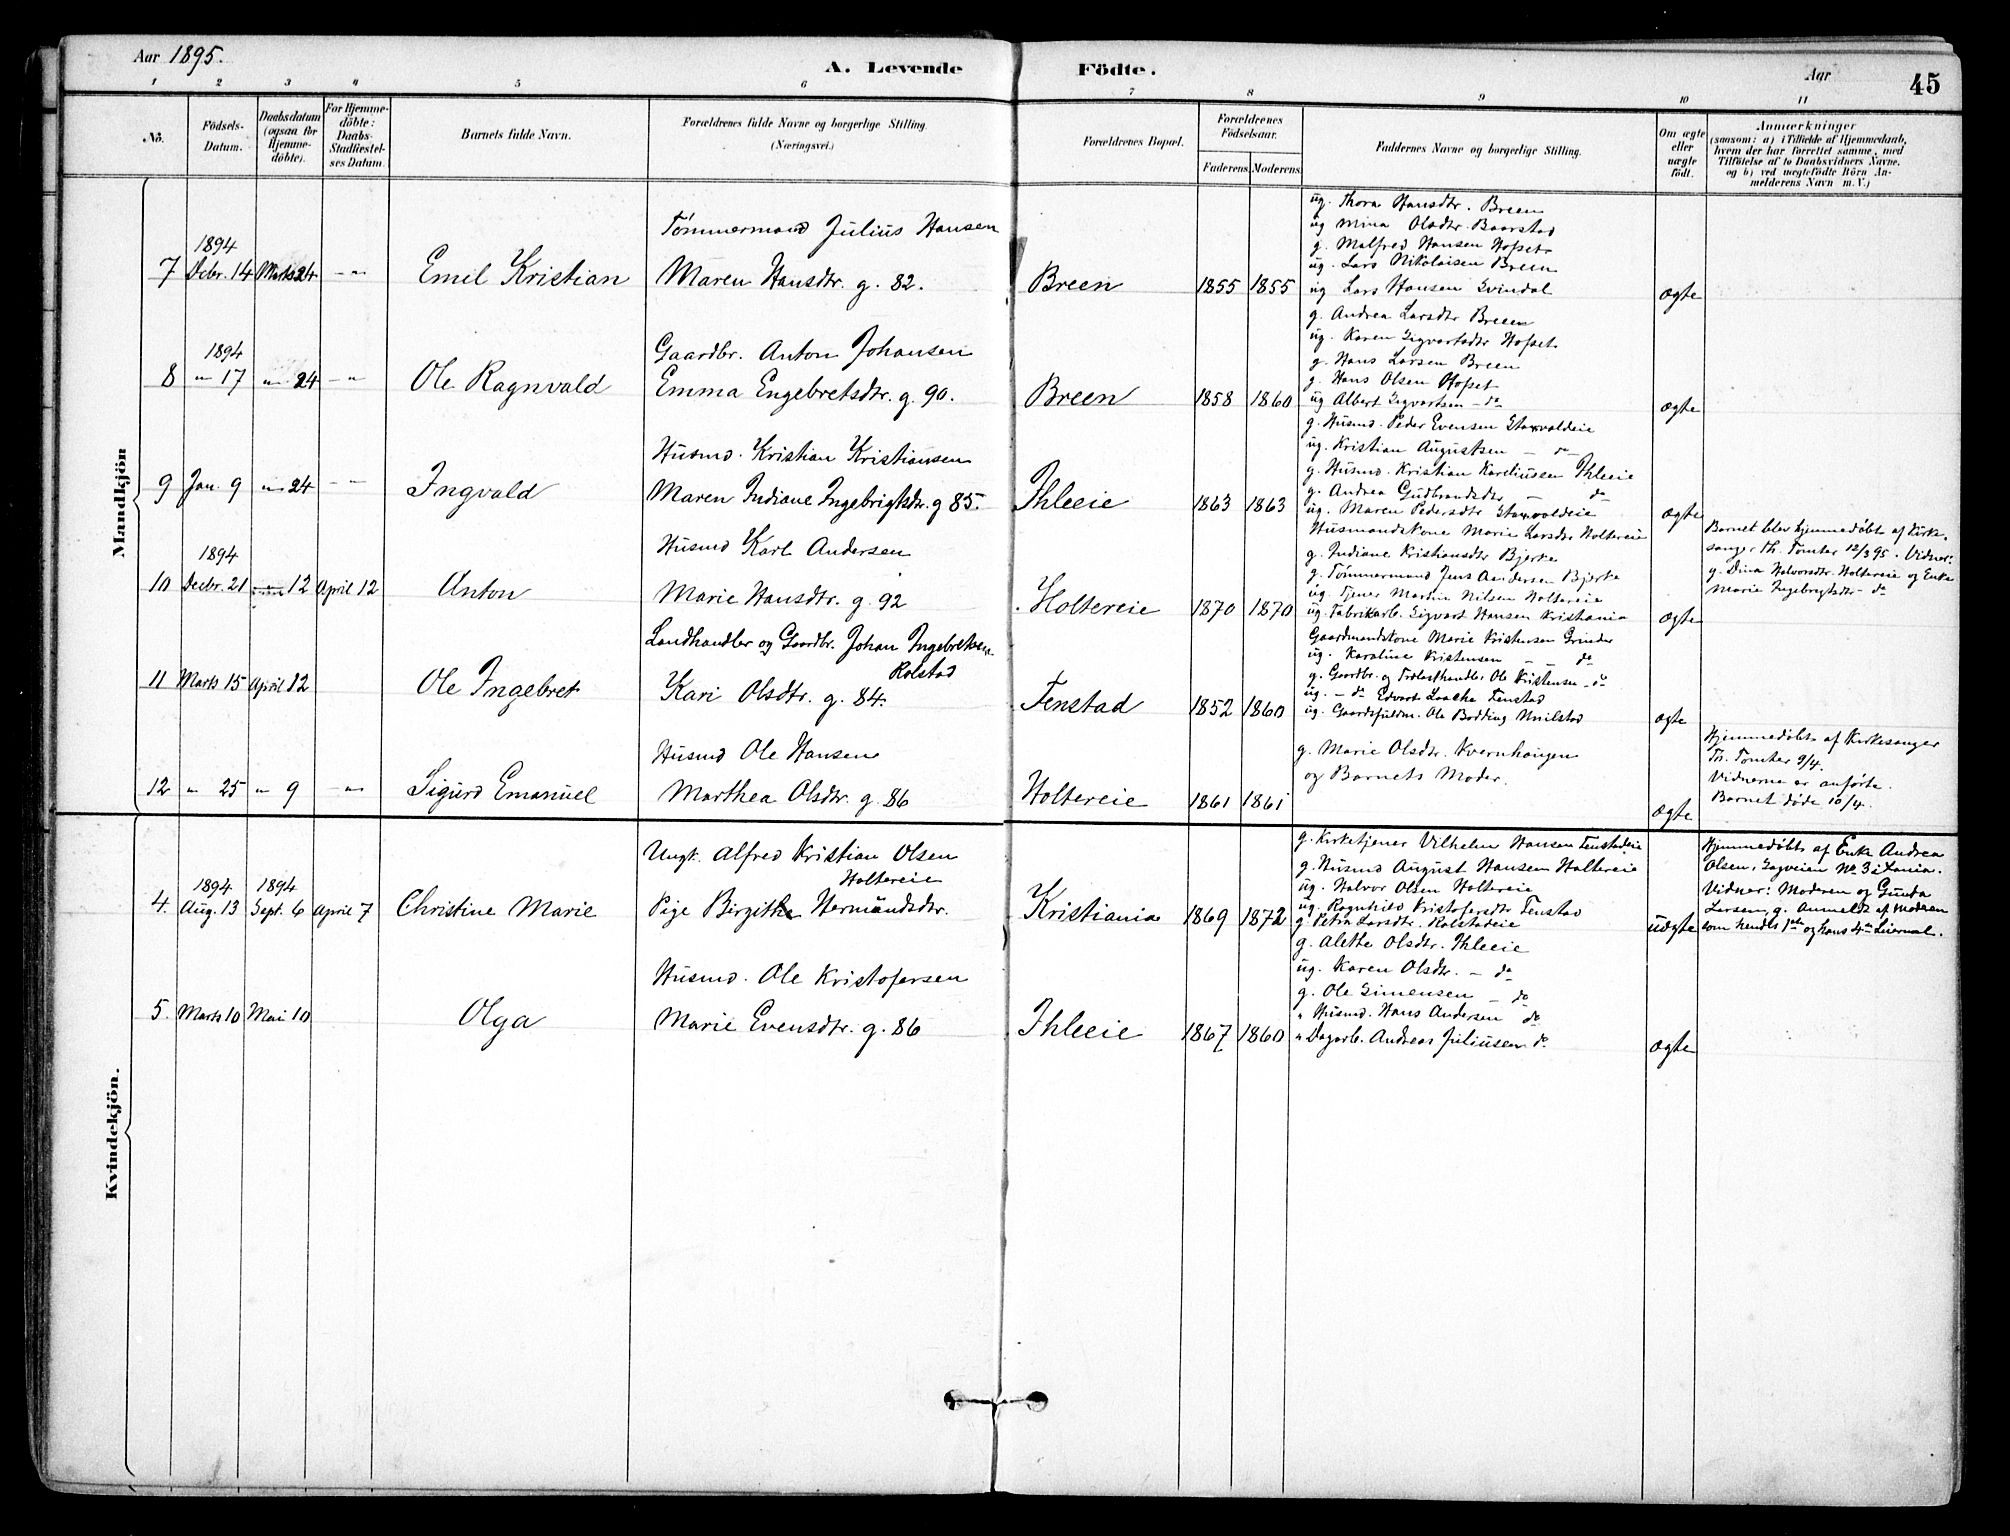 Aar 1895.
A. Levende Födte.
Aar
45
1 2 3 4 5 6 7 8 9 10 11
No.
Födsels-Datum.
Daabsdatum (ogsaa for Hjemme-döbte).
For Hjemme-döbte: Daabs-Stadfæstel-ses Datum.
Barnets fulde Navn.
Forældrenes fulde Navne og borgerlige Stilling. (Næringsvei.)
Forældrenes Bopæl.
Forældrenes Födselsaar.
Faderens. Moderens.
Faddernes Navne og borgerlige Stilling.
Om ægte eller uægte födt.
Anmærkninger
(saasom: a) i Tilfælde af Hjemmedaab,
hvem der har forrettet samme, med
Tilföielse af to Daabsvidners Navne,
og b) ved uægtefödte Börn An-
melderens Navn m. V.)
Mandkjön
7 1894 Decbr. 14 Marts 24 - " Emil Kristian
Tømmermand Julius Hansen
Maren Hansdtr. g. 82.
Breen 1855 1855
ug. Thora Hansdtr. Breen
ug Mina Olsdtr. Baarstad
g. Malfred Hansen Hofset
ug. Lars Nikolaisen Breen
ug Lars Hansen Svindal
ægte
8 1894 " 17 " 24 - " Ole Ragnvald
Gaardbr. Anton Johansen
Emma Engebretsdtr. g. 90.
Breen 1858 1860
g. Andrea Larsdtr Breen
ug. Karen Sigvartsdtr Hofset
g. Hans Larsen Breen
g. Hans Olsen Hofset
ug Albert Sigvartsen - do
ægte
9 Jan. 9 " 24 - " Ingvald
Husmd. Kristian Kristiansen
Maren Indiane Ingebrigtsdtr. g 85.
Ihleeie 1863 1863
g. Husmd. Peder Evensen Staxvaldeie
ug. Kristian Augustsen - do
g. Husmd. Kristian Kareliussen Ihleeie
g. Andrea Gudbrandsdtr - do
ug. Maren Pedersdtr Staxvaldeie
ægte
10 1894 Decbr. 21 12 April 12 Anton
Husmd Karl Andersen
Marie Hansdtr. g. 92
Holtereie 1870 1870
Husmandskone Marie Larsdtr Holtereie
g. Indiane Kristiansdtr Bjerke
g. Tømmermand Jens Andersen Bjerke
ug. Tjener Martin Nilsen Holtereie
ug. Fabrikarb. Sigvart Hansen Kristiania
ægte
Barnet blev hjemmedøbt af Kirke-
sanger Th. Tomter 12/3 95. Vidner:
g. Dina Halvorsdtr. Holtereie og Enke
Marie Ingebrigtsdtr - do
11 Marts 15 April 12 Ole Ingebret
Landhandler og Gaardbr. Johan Ingebretsen
Rolstad
Kari Olsdtr. g. 84.
Tenstad 1852 1860
Gaardmandskone Marie Kristensen Grinder
ug. Karoline Kristensen - do
g. Gaardbr. og Trælasthandler Ole Kristensen - do
ug. - do Edvart Laache Tenstad
ug. Gaardsfuldm. Ole Bodding
ægte
12 " 25 " 9 - " Sigurd Emanuel
Husmd Ole Hansen
Marthea Olsdtr. g. 86
Holtereie 1861 1861
g. Marie Olsdtr. Kvernhaugen
og Barnets Moder.
ægte
Hjemmedøbt af Kirkesanger
Th. Tomter 9/4.
Vidnerne er anførte.
Barnet døde 10/4.
Kvindekjön.
4. 1894 Aug. 13 1894 Sept. 6 April 7 Christine Marie
Ungk. Alfred Kristian Olsen
Holtereie
Pige Birgithe Hermandsdtr.
Kristiania 1869 1872
g. Kirketjener Vilhelm Hansen Tenstadeie
g. Husmd August Hansen Holtereie
ug. Halvor Olsen Holtereie
ug. Ragnhild Kristofersdtr Tenstad
g. Petra Larsdtr. Rolstadeie
uægte
Hjemmedøbt af Enke Andrea
Olsen, Sagveien No 3 i Xania.
Vidner: Moderen og Gunda
Larsen, g. Anmeldt af Moderen
som hendes 1ste og hans 4de Leiermal.
5. Marts 10 Mai 10 Olga
Husmd. Ole Kristofersen
Marie Evensdtr. g. 86
Ihleeie 1867 1860
g. Alette Olsdtr. Ihleeie
ug. Karen Olsdtr. - do
g. Ole Simensen - do
" Husmd. Hans Andersen do
" Dagarb. Andreas Juliussen do
ægte